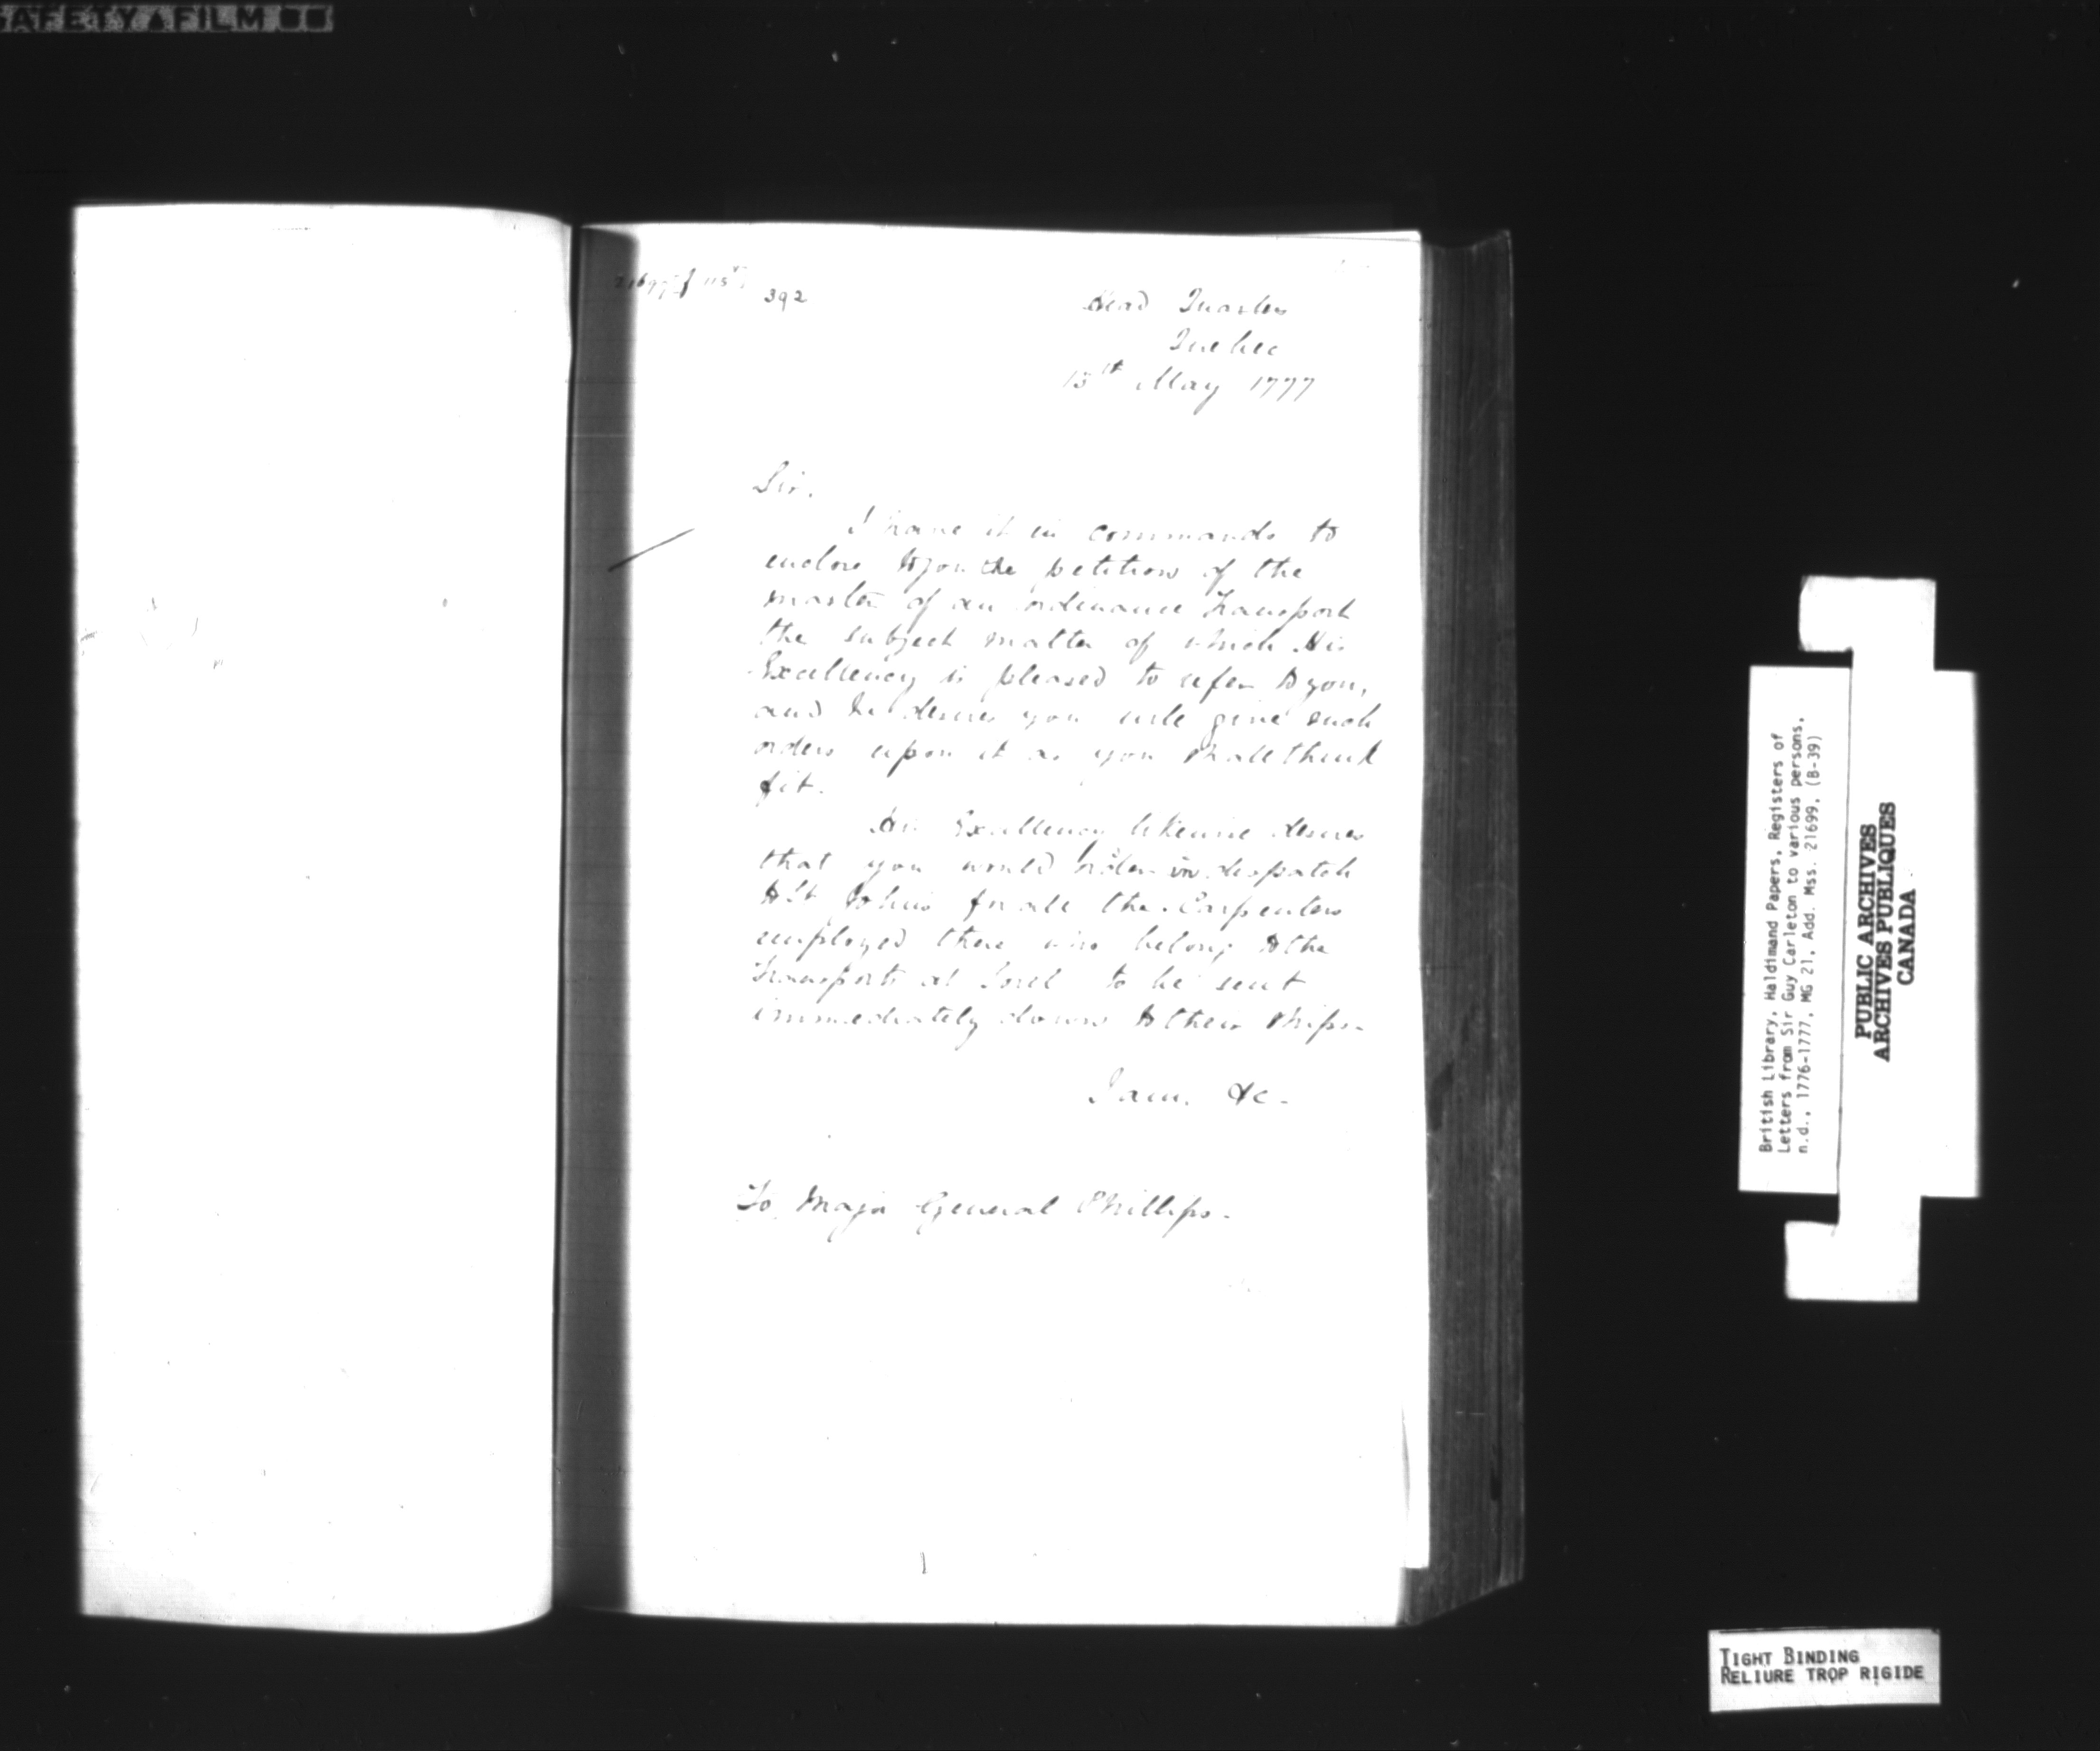 SAFETY FILM
392
Head Quarters
Quebec
15th May 1777
Sir,
I have it in commands to
enclose to you the petition of the
master of an ordinance Transport
the subject matter of which His
Excellency is pleased to refer to you,
and he desires you will give such
orders upon it as you shall think
fit.
His Excellency likewise desires
that you would order in despatch
to St Johns for all the Carpenters
employed there who belong to the
Transports at Sorel to be sent
immediately down to their ships.
I am, &c.
To Major General Phillips.
British Library, Haldimand Papers, Registers of
Letters from Sir Guy Carleton to various persons,
n.d., 1776-1777, MG 21, Add. Mss. 21699, (B-39)
PUBLIC ARCHIVES
ARCHIVES PUBLIQUES
CANADA
TIGHT BINDING
RELIURE TROP RIGIDE